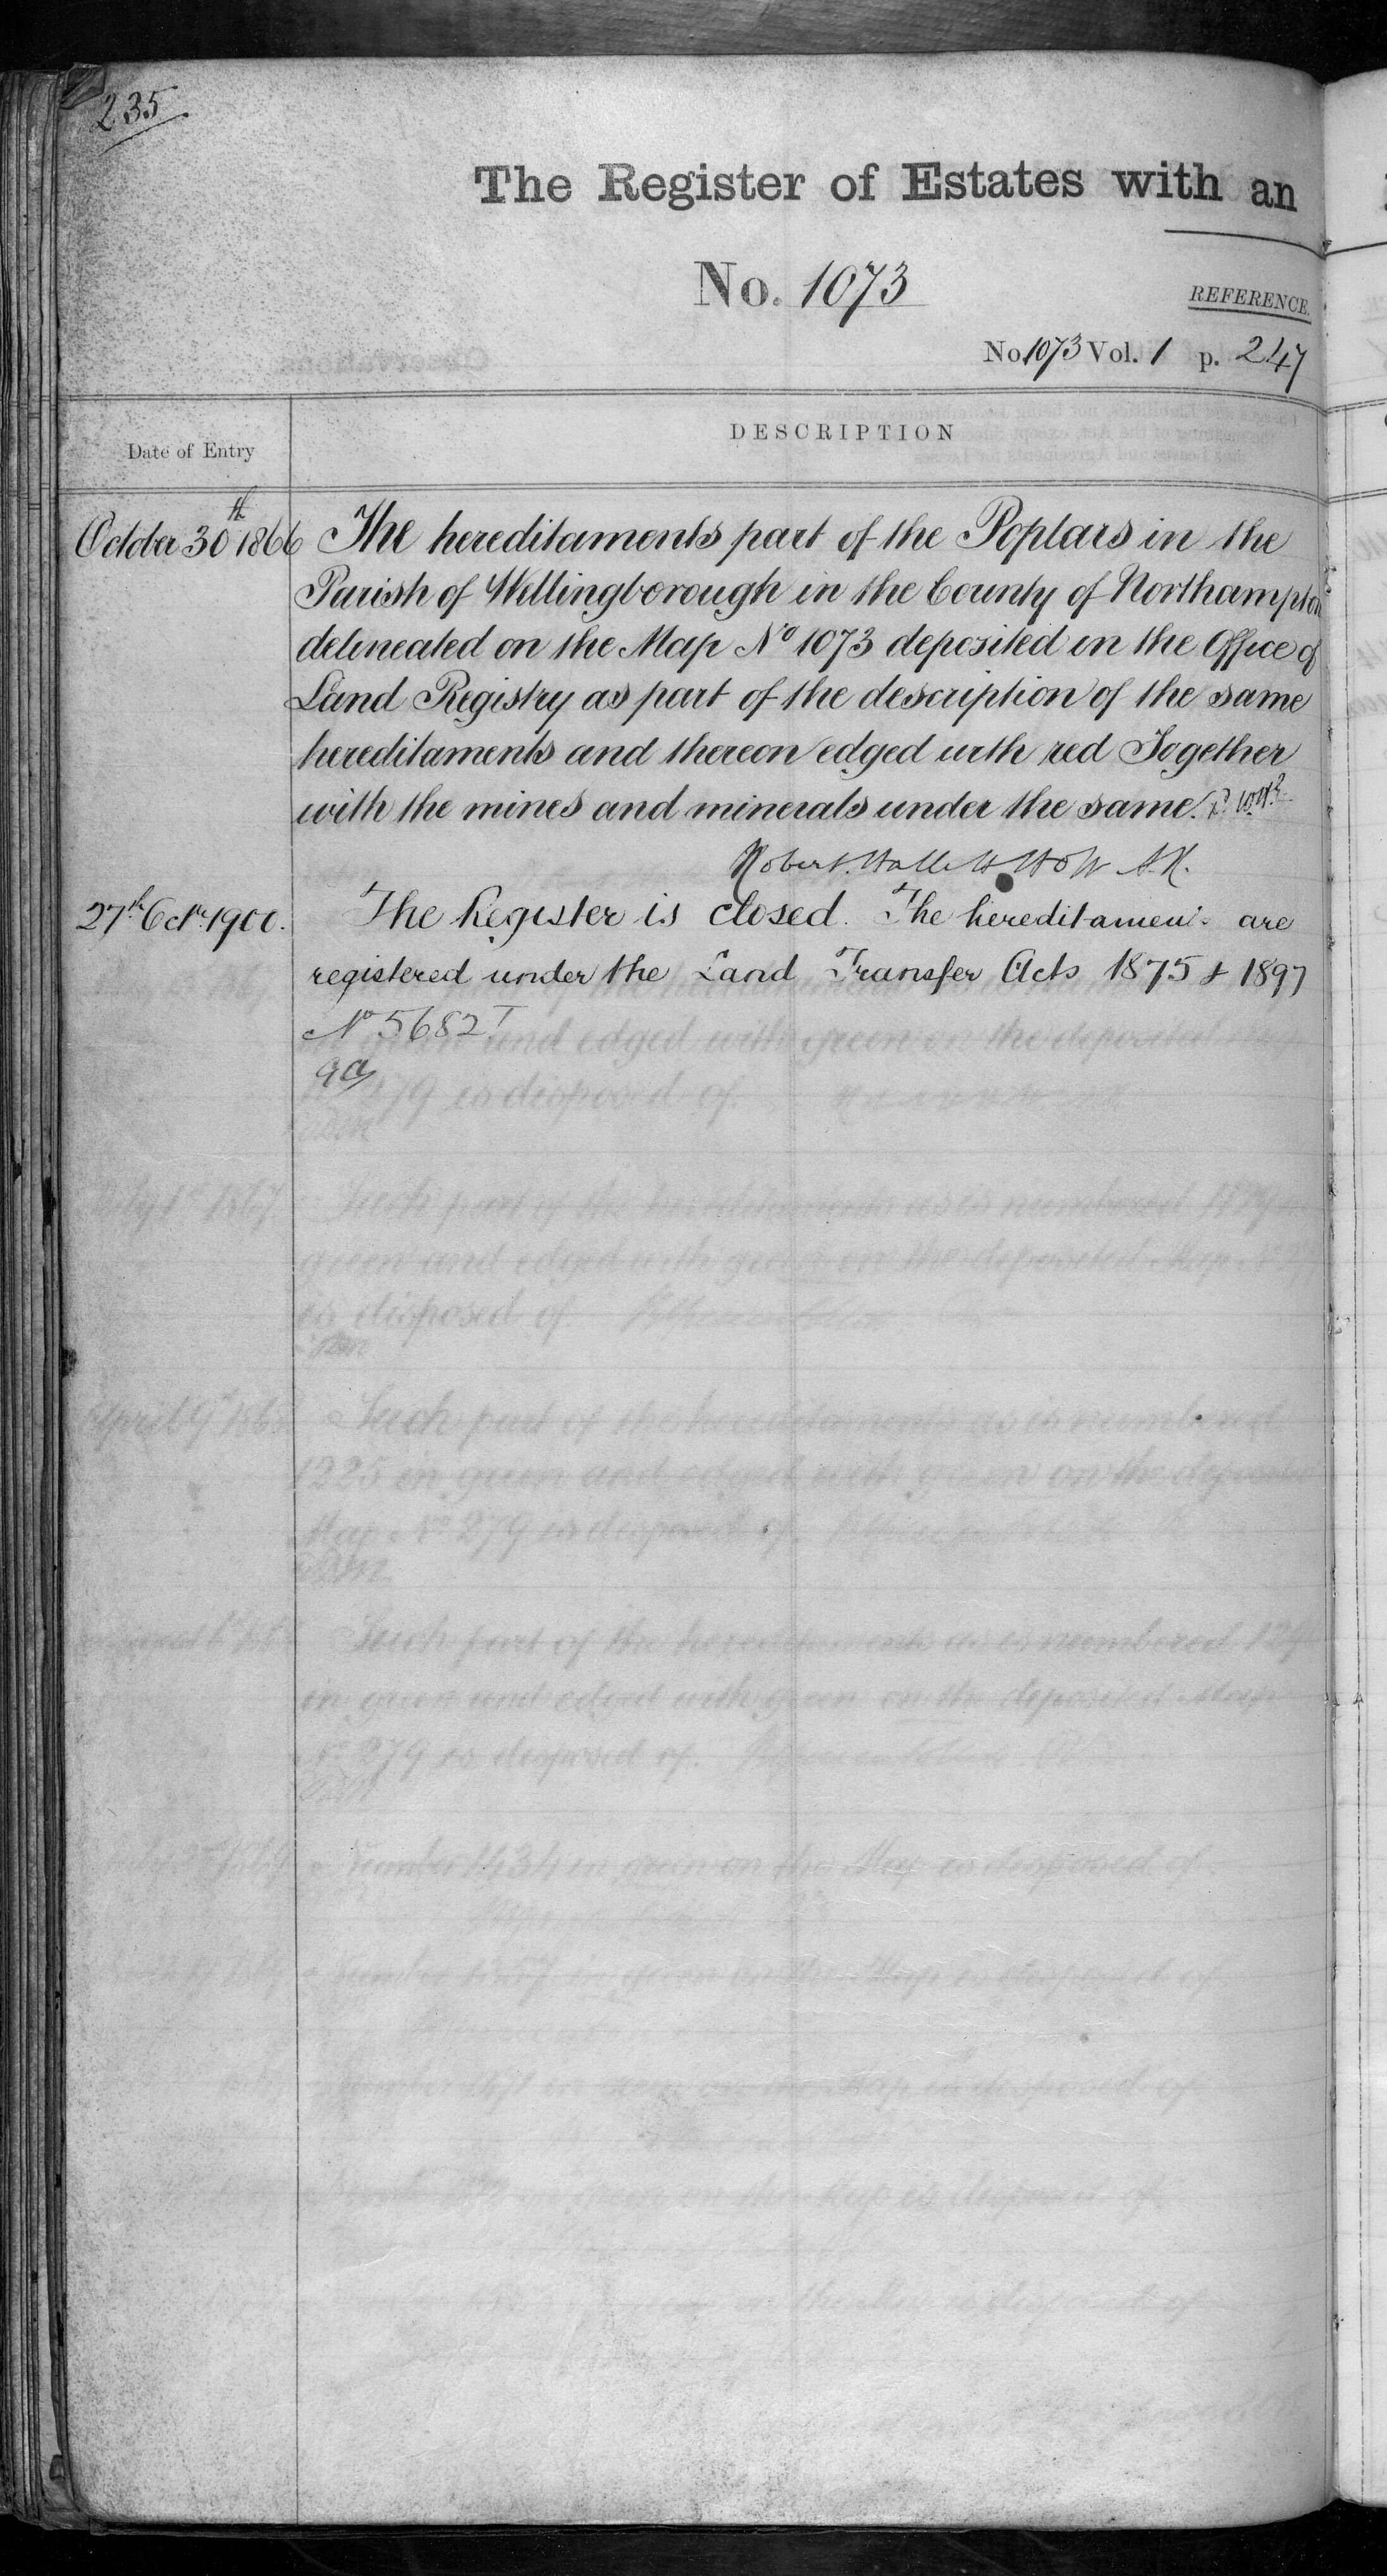 235
The Register of Estates with an
No. 1073
REFERENCE.
No 1073 Vol. 1 p. 247
Date of Entry
DESCRIPTION
October 30th 1866 The hereditaments part of the Poplars in the
Parish of Wellingborough in the County of Northampton
delineated on the Map No 1073 deposited in the Office of
Land Registry as part of the description of the same
hereditaments and thereon edged with red Together
with the mines and minerals under the same.
Robert Hallett Holt A.R.
27th Octr. 1900. The Register is closed. The hereditaments are
registered under the Land Transfer Acts 1875 & 1897
No 5682